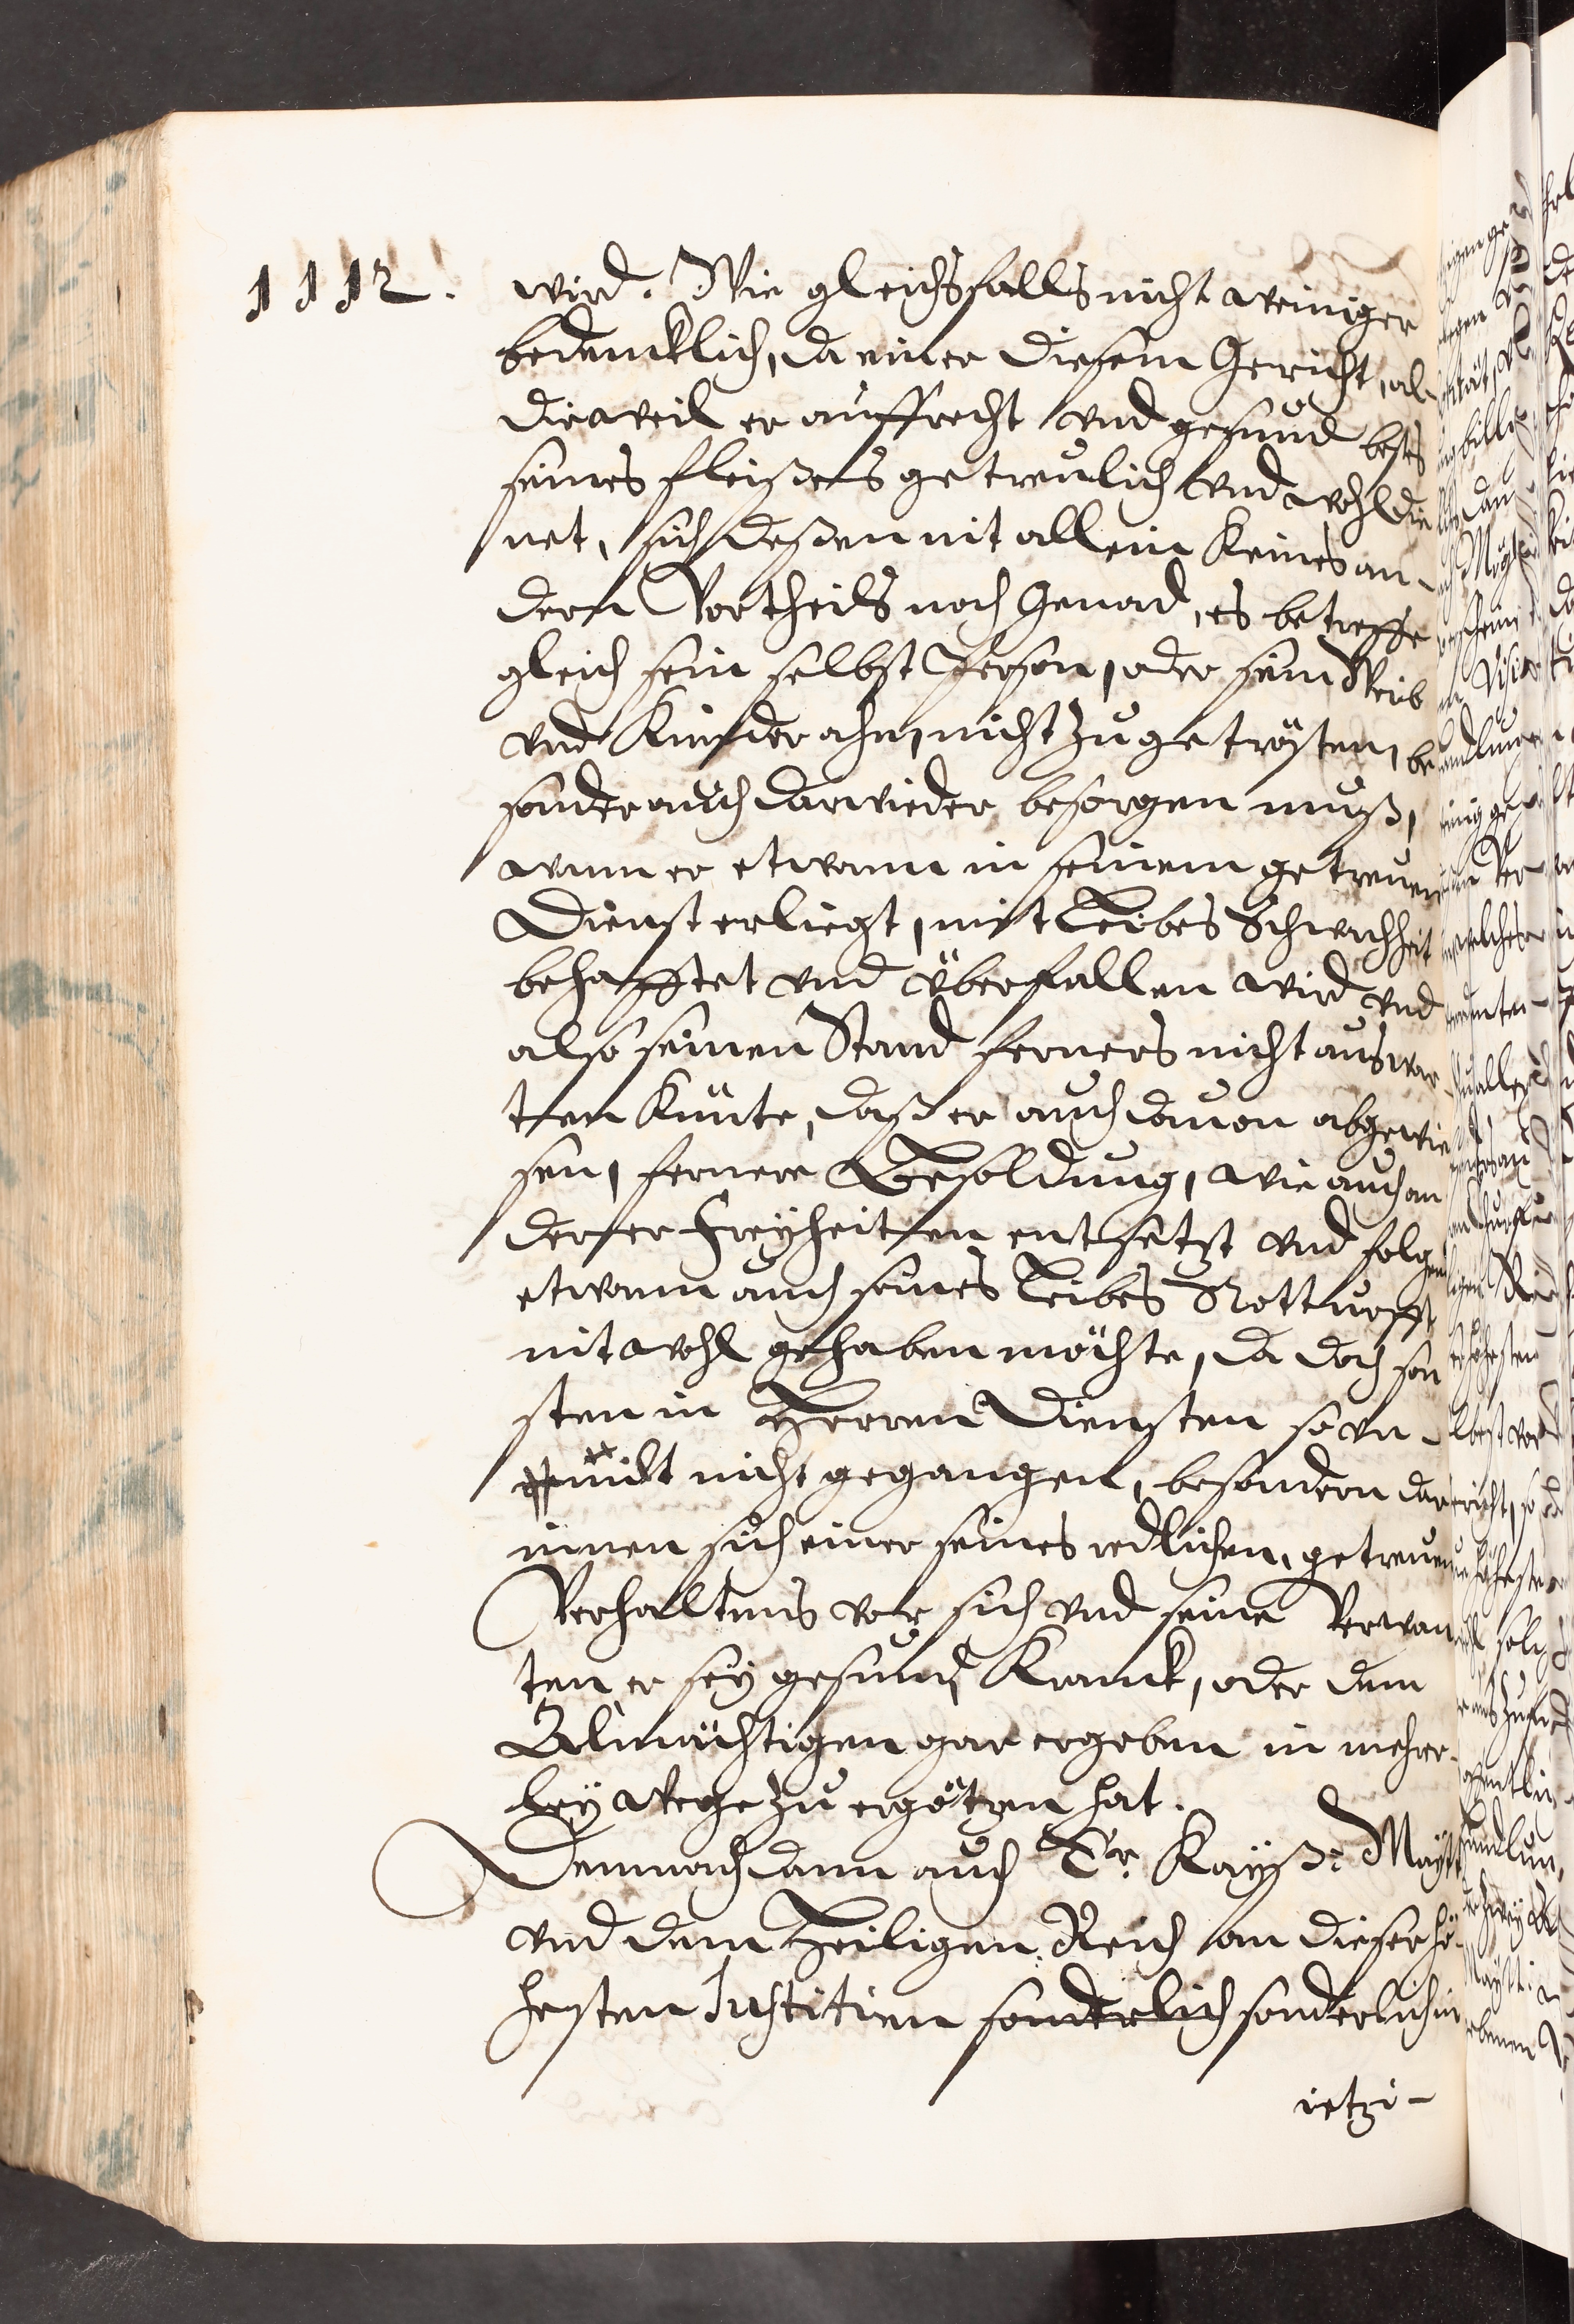 1112.
wird. Wie gleichsfalls nicht weiniger
bedencklich, da einer diesem Gericht, al-
dieweil er auffrecht vnd gesund bestes
seines fleißes getreulich vnd wohl die
net, sich deßen nit allein keines an-
dern Vortheils noch Genad, es betreffe
gleich sein selbst Person, oder sein Weib
vnd Kinder ahn, nicht zu getrösten, be
sonder auch darwieder besorgen muß,
wann er etwann in seinem getreuen
Dienst erliegt, mit Leibes Schwachheit
behafftet vnd überfallen wird vnd
also seinen Stand ferners nicht auswar
ten künte, daß er auch dauon abgewie
sen, fernere Besoldung, wie auch an
derer Freyheiten entsetzt vnd folgen
etwann auch seines Leibes Notturfft
nit wohl gehaben möchte, da doch son
sten in Herren Diensten so vn-
millt nicht gegangen, besondern dar
innen sich einer seines redlichen, getreuen
Verhaltens vor sich vnd seine Verwan
ten er sey gesund, Kranck, oder dem
Allmächtigen gar ergeben in mehrer-
ley Wege zu ergötzen hat.
Demnach dann auch Er. Kayß: Maytt
vnd dem Heiligen Reich an dieser hö-
hesten Justitien sonderlich sonderlich in
ietzi-